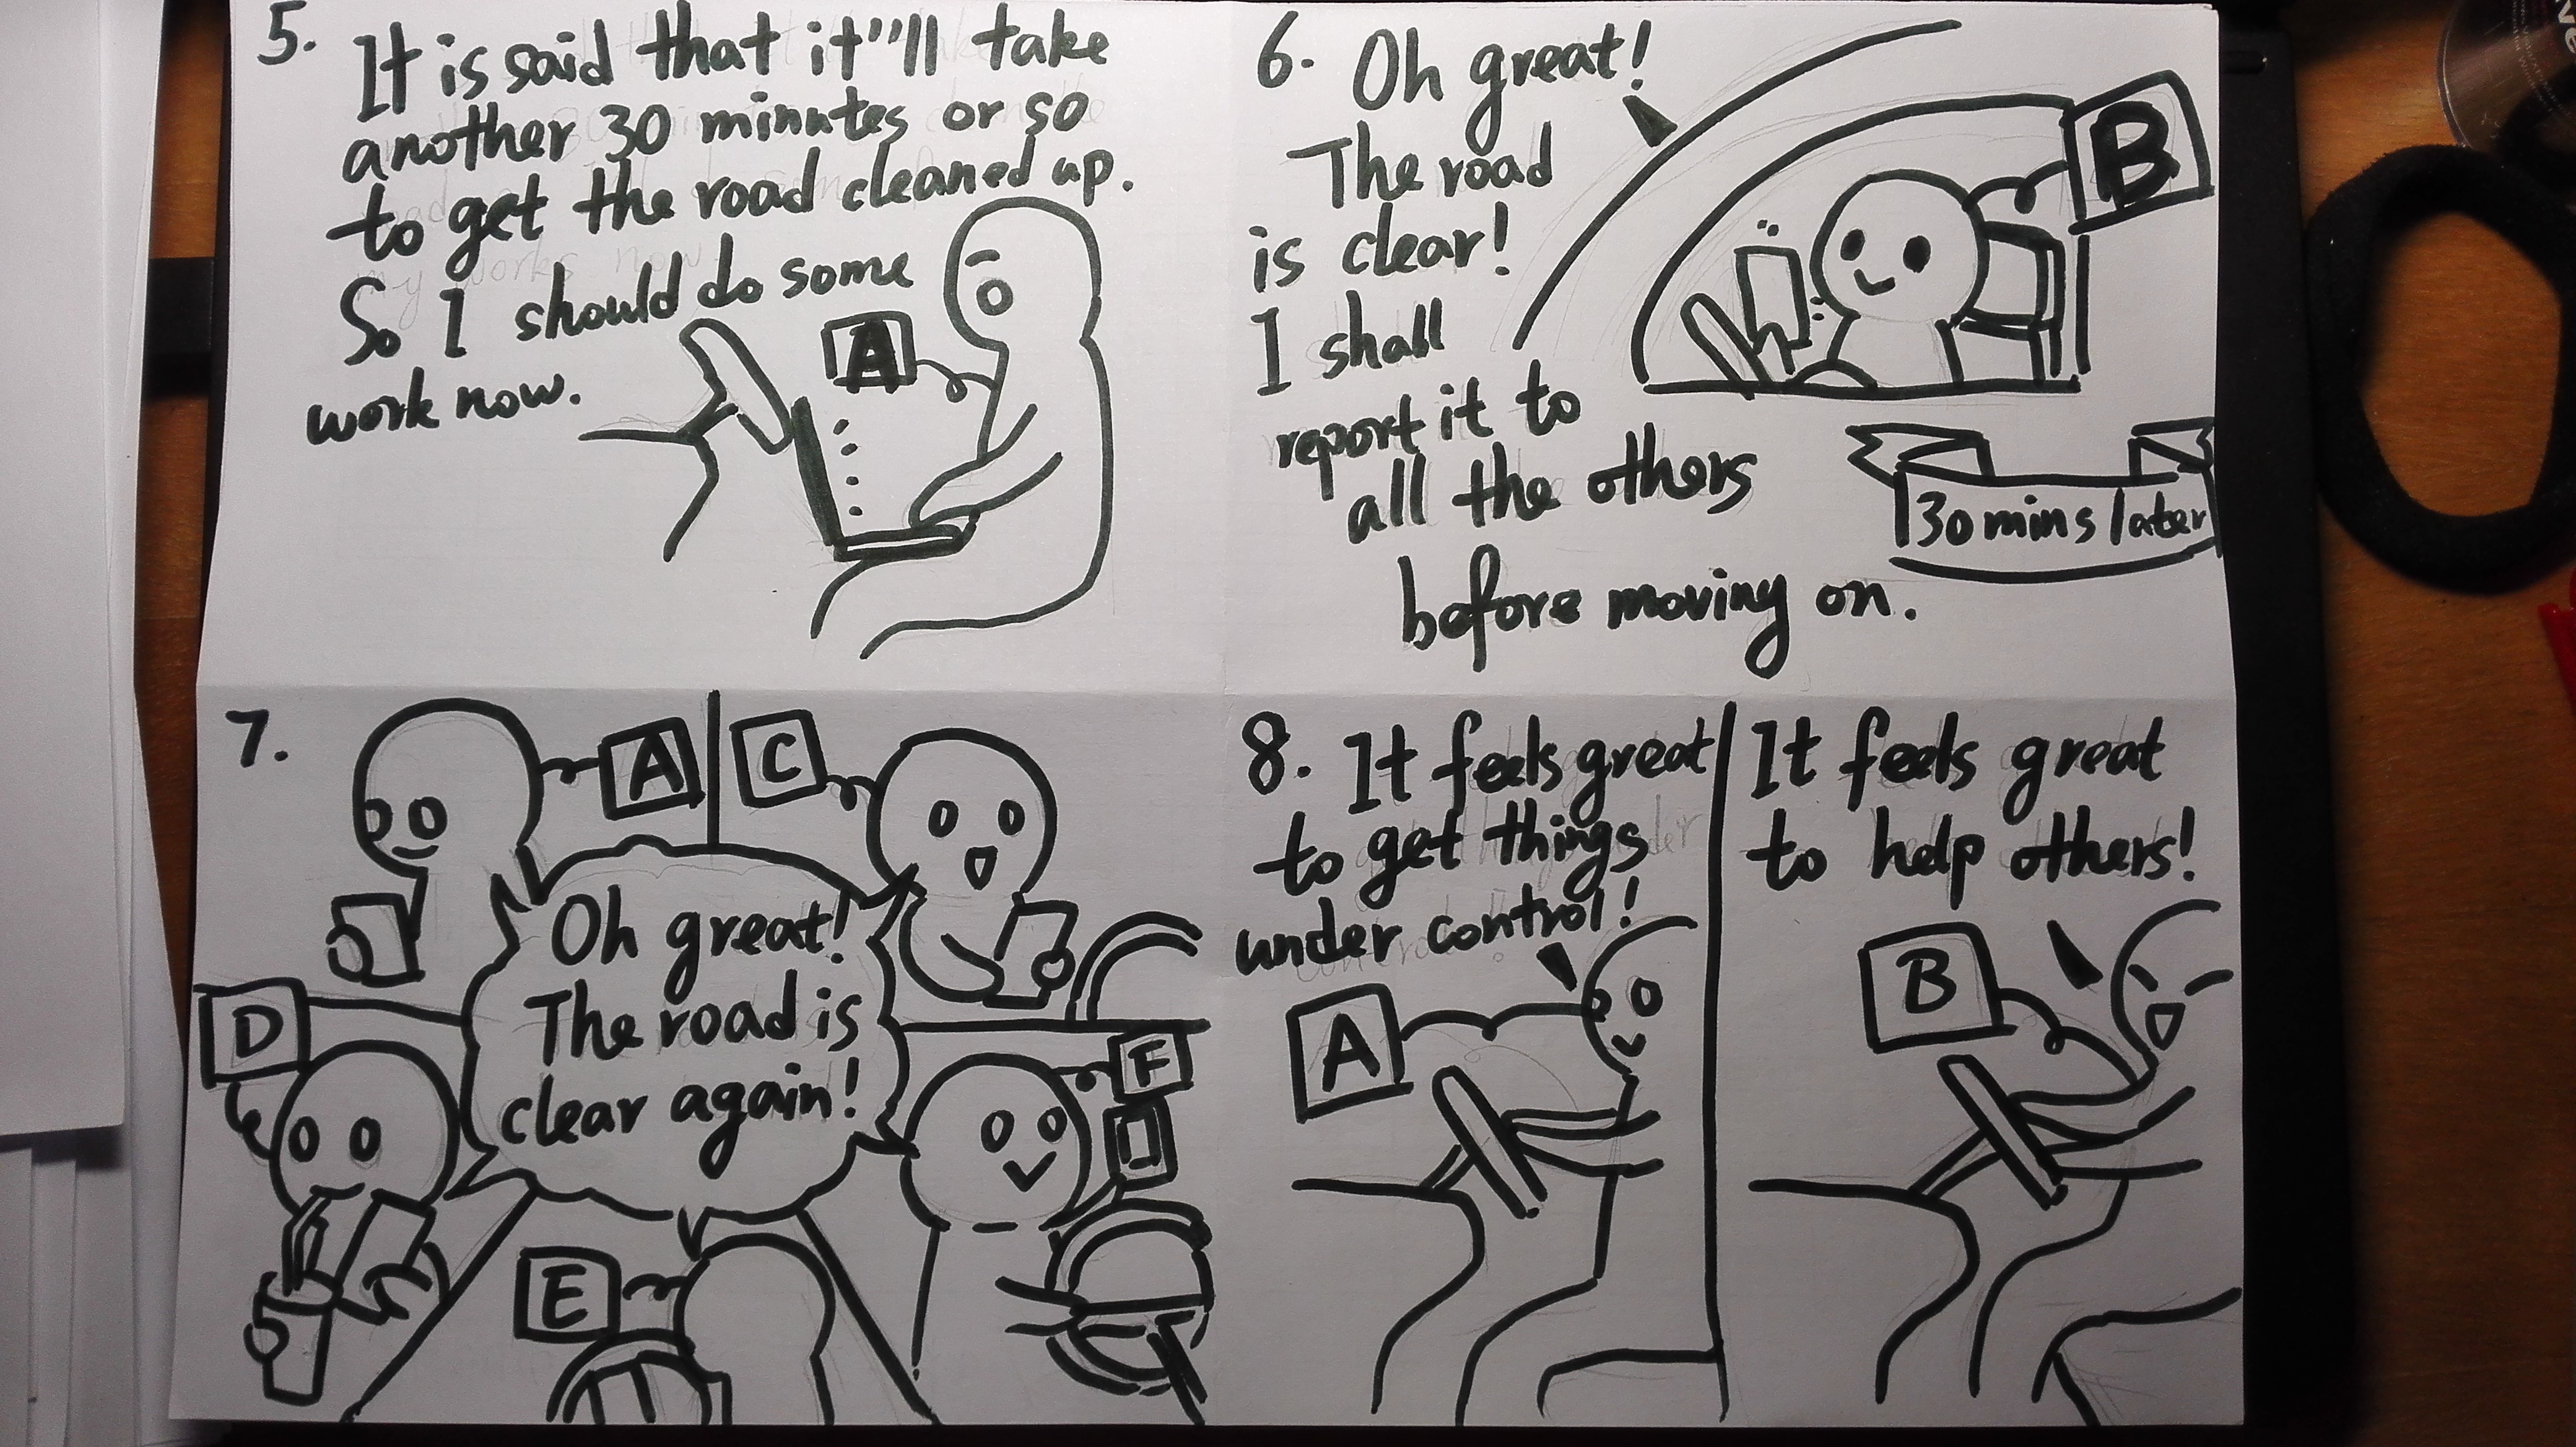 5.
It is said that it"ll take
another 30 minutes or so
to get the road cleaned up.
So I should do some
work now.
A
6.
Oh great!
The road
is clear!
I shall
report it to
all the others
before moving on.
B
30 mins later
7.
A
C
D
Oh great!
The road is
clear again!
F
E
8.
It feels great
to get things
under control!
A
It feels great
to help others!
B